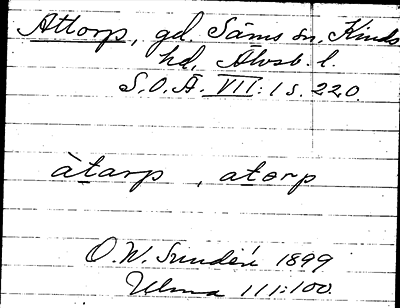 Attorp, gd. Säms sn. Kinds
hd. Älvsb. l.
S.O.Ä. VII:1 s. 220.
àtarp , atorp
O.W. Sundén 1899
Ulma 111:100.